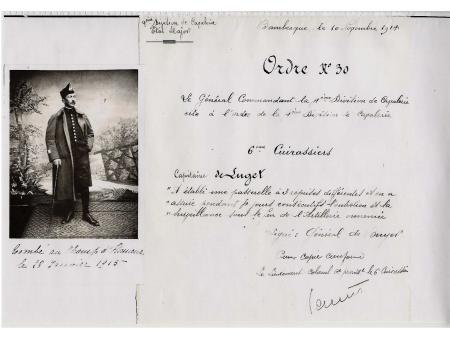 4ème Division de Cavalerie
Etat Major
le 10 Novembre 1914
Ordre N° 30
Le Général Commandant la 4ème Division de Cavalerie
cite à l'ordre de la 4ème Division de Cavalerie
6ème Cuirassiers
Capitaine de Luget
"A établi une passerelle à 3 reprises différentes et en a
"assuré pendant jours consécutifs l'entretien et la
"surveillance sous le feu de l'Artillerie ennemie
Signé: Général de
Pour Copie Conforme
Le Lieutenant Colonel le 6e Cuirassiers
Tombé au Champ d'Honneur
le 25 Janvier 1915